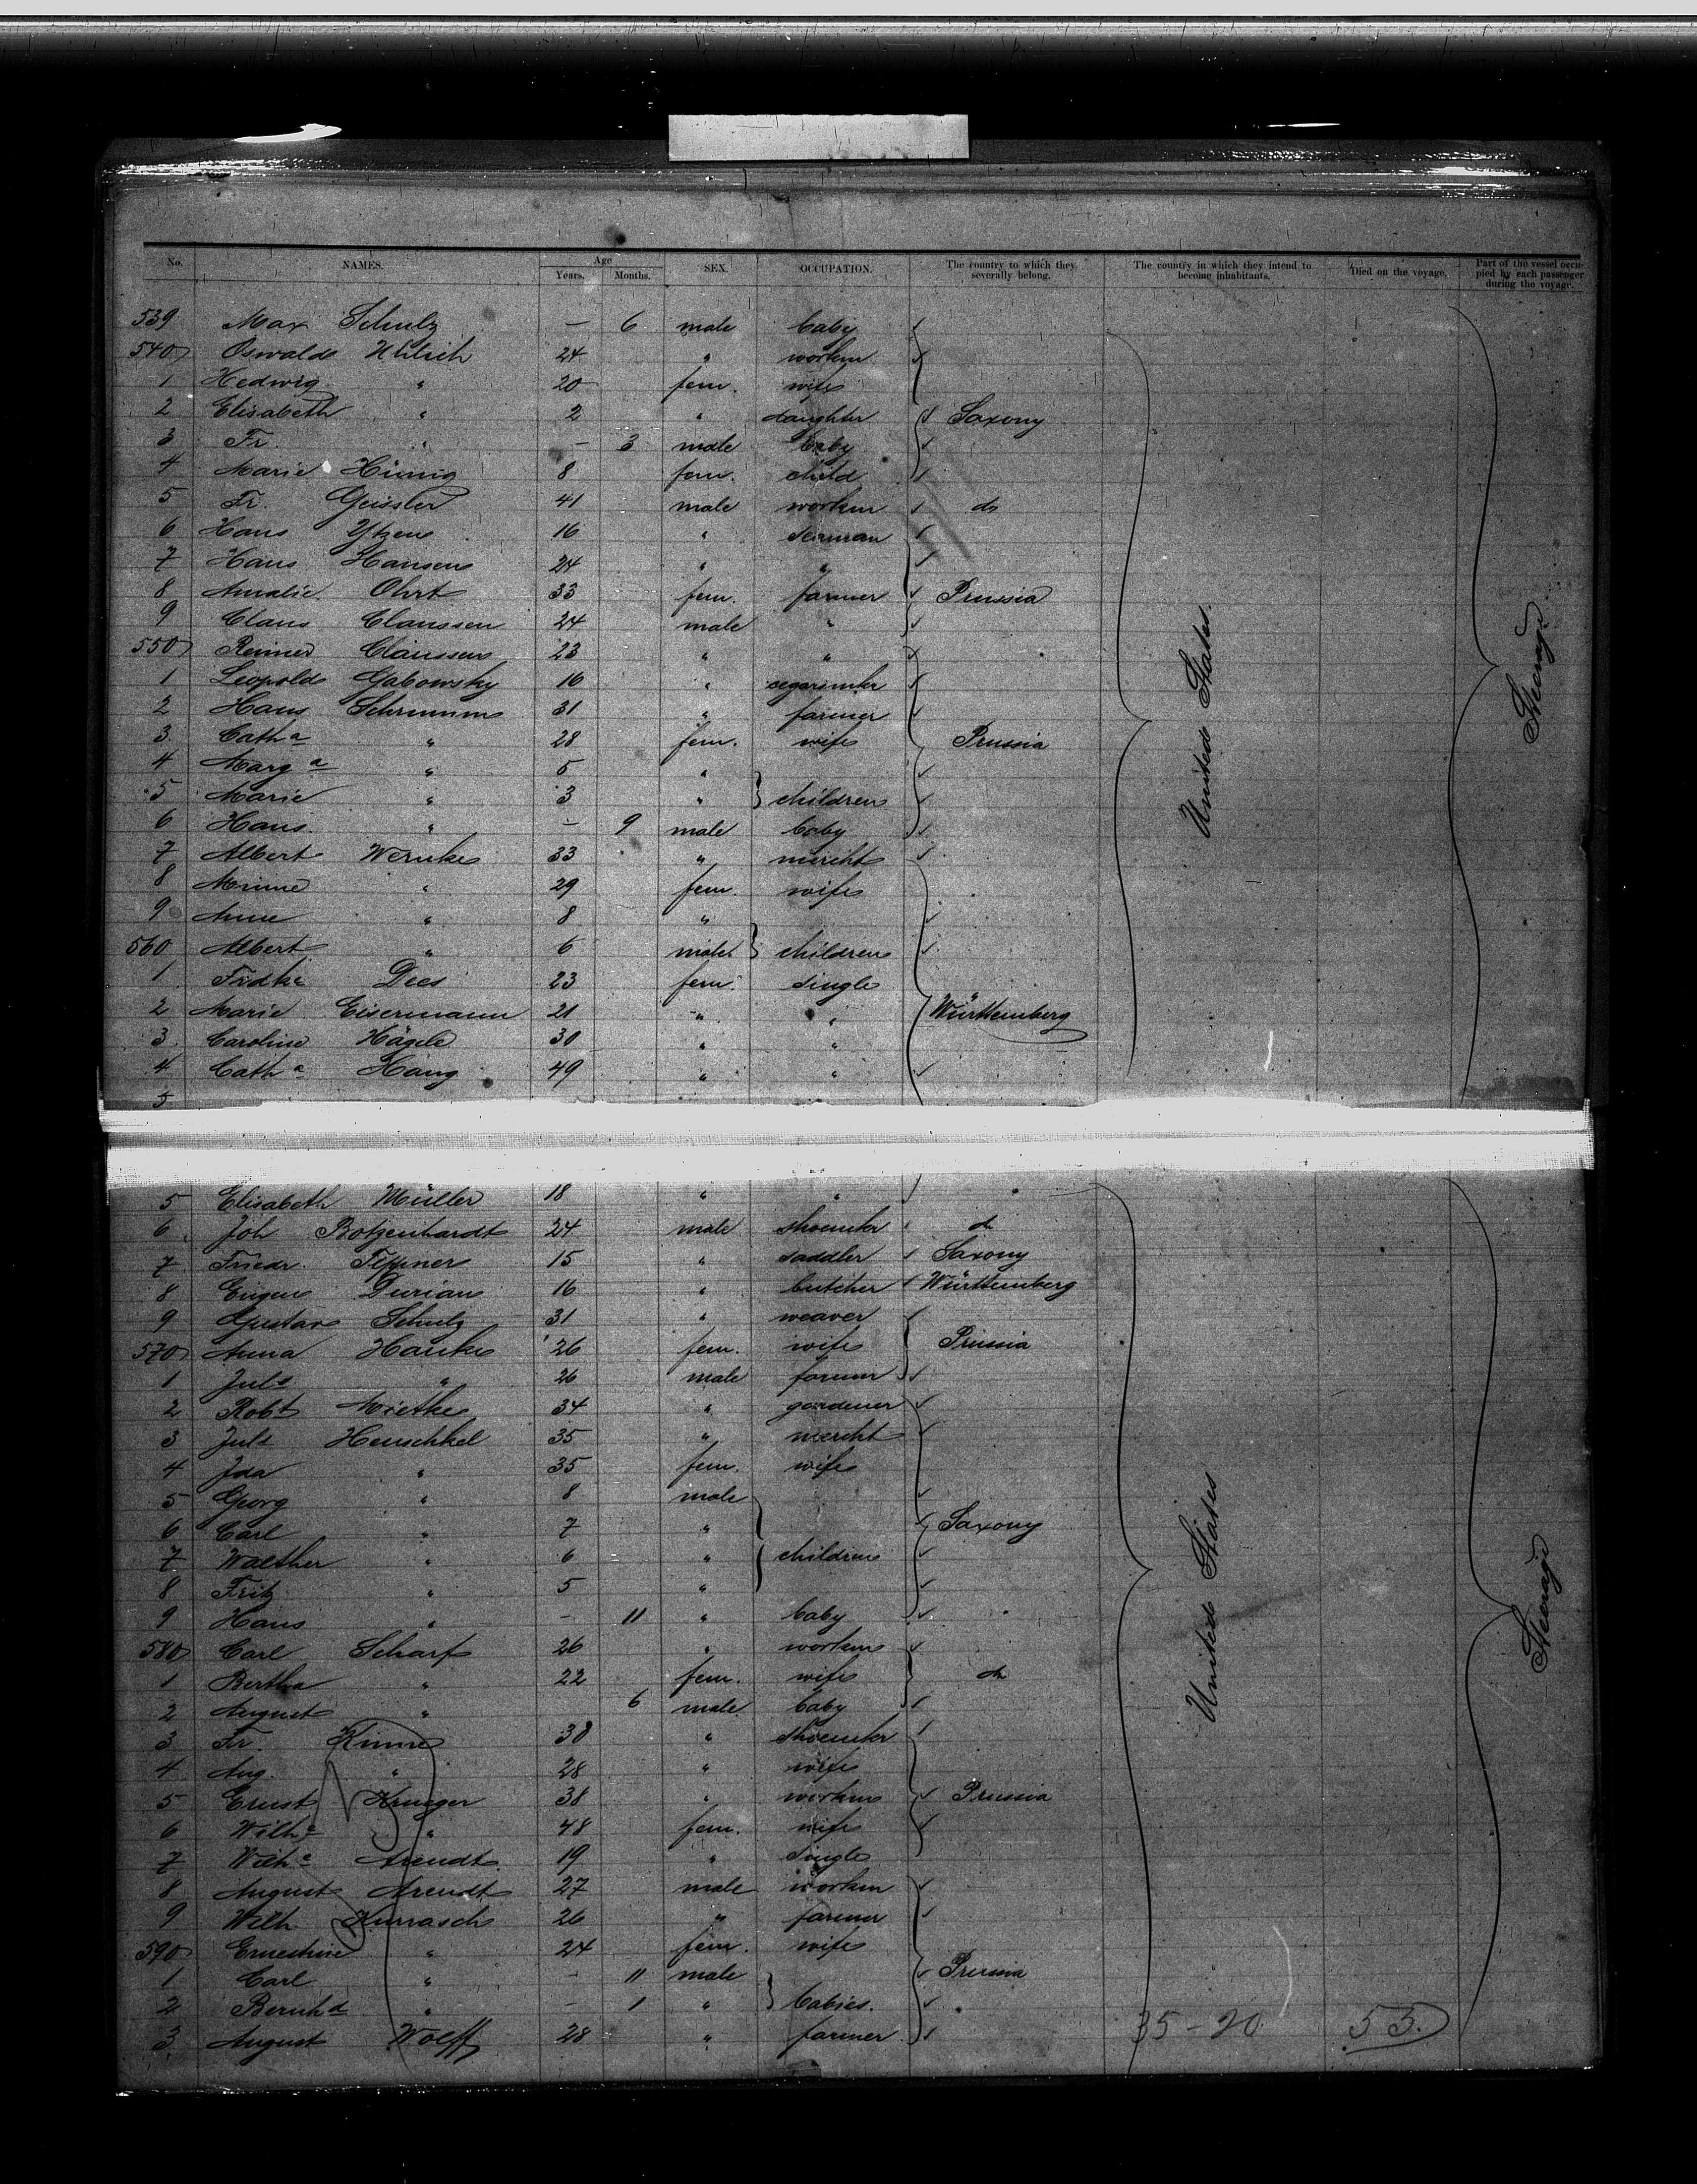 No. NAMES. Age Years. Months. SEX. OCCUPATION. The country to which they severally belong. The country in which they intend to become inhabitants. Died on the voyage. Part of the vessel occupied by each passenger during the voyage.
539 Max Schulz — 6 male baby
540 Oswald Uhlich 24 " workm
1 Hedwig " 20 fem. wife
2 Elisabeth " 2 " daughter Saxony
3 Fr. " — 3 male baby
4 Marie 8 fem. child
5 Fr. Geissler 41 male workm do
6 Hans 16 " seaman
7 Hans Hansen 24 " "
8 Amalie Ohrt 33 fem. farmer Prussia
9 Claus Claussen 24 male "
550 Reimer Claussen 23 " "
1 Leopold Gabowsky 16 " cegarmkr
2 Hans Schrumm 31 " farmer
3 Cath a " 28 fem. wife Prussia
4 Marg a " 5 "
5 Marie " 3 " children
6 Hans " — 9 male baby
7 Albert Wernke 33 " mercht
8 Minne " 29 fem. wife
9 Anne " 8 "
560 Albert " 6 male children
1 Fridke Dees 23 fem. single
2 Marie Eisermann 21 " " Württemberg
3 Caroline Hägele 30 " "
4 Cath a Haug 49 " "
5
United States.
Steerage
5 Elisabeth Müller 18 " "
6 Joh Botzenhardt 24 male shoemkr do
7 Friedr. Tippner 15 " saddler Saxony
8 Eugen Durian 16 " butcher Württemberg
9 Gustav Schulz 31 " weaver
570 Anna Hanke 26 fem. wife Prussia
1 Juls " 26 male farmer
2 Robt Mietke 34 " gardener
3 Juls Henschkel 35 " mercht
4 Ida " 35 fem. wife
5 Georg " 8 male
6 Carl " 7 " Saxony
7 Walther " 6 " children
8 Fritz " 5 "
9 Hans " — 11 " baby
580 Carl Scharf 26 " workm
1 Bertha " 22 fem. wife do
2 August " 6 male baby
3 Fr. Kinne 30 " shoemkr
4 Aug. " 28 " wife
5 Ernst Krueger 38 " workm Prussia
6 Wilhe " 48 fem. wife
7 Wilhe Arendt 19 " single
8 August Arendt 27 male workm
9 Wilh Kurrasch 26 " farmer
590 Ernestine " 24 fem. wife
1 Carl " — 11 male Prussia
2 Bernhd " — 1 " babies.
3 August Wolff 28 " farmer
United States
Steerage
35-20
53.